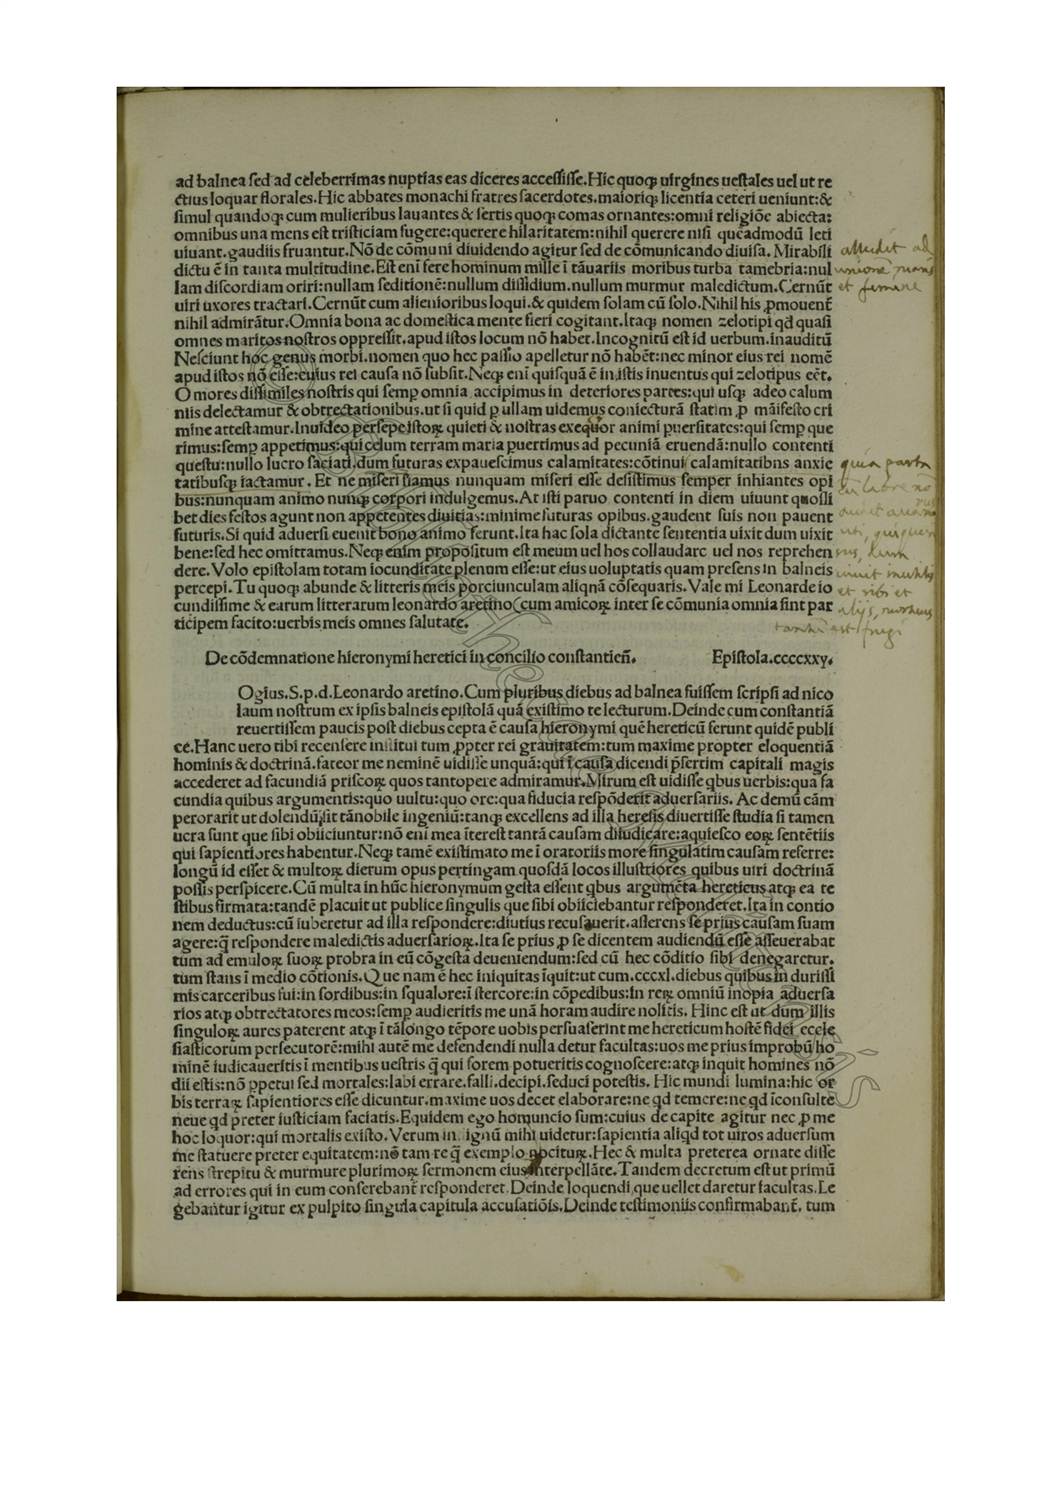 ad balnea sed ad celeberrimas nuptias eas diceres accessisse. Hic quoqꝫ uirgines uestales uel ut re
ctius loquar florales. Hic abbates monachi fratres sacerdotes. maioriqꝫ licentia ceteri ueniunt: &
simul quandoqꝫ cum mulieribus lauantes & sertis quoqꝫ comas ornantes: omni religiõe abiecta:
omnibus una mens est tristiciam fugere: querere hilaritatem: nihil querere nisi quẽadmodũ leti
uiuant. gaudiis fruantur. Nõ de cõmuni diuidendo agitur sed de cõmunicando diuisa. Mirabili
dictu ẽ in tanta multitudine. Est enĩ fere hominum mille ĩ tãuariis moribus turba tamebria: nul
lam discordiam oriri: nullam seditionẽ: nullum dissidium. nullum murmur maledictum. Cernũt
uiri uxores tractari. Cernũt cum alienioribus loqui. & quidem solam cũ solo. Nihil his ꝓmouent̃
nihil admirãtur. Omnia bona ac domestica mente fieri cogitant. Itaqꝫ nomen zelotipi qd̃ quasi
omnes maritos nostros oppressit. apud istos locum nõ habet. Incognitũ est id uerbum. inauditũ
Nesciunt hoc genus morbi. nomen quo hec passio apelletur nõ habẽt: nec minor eius rei nomẽ
apud istos nõ esse: cuius rei causa nõ subsit. Neqꝫ enĩ quisquã ẽ in istis inuentus qui zelotipus eẽt.
O mores dissimiles nostris qui semꝑ omnia accipimus in deteriores partes: qui usqꝫ adeo calum
niis delectamur & obtrectationibus. ut si quid ꝑ ullam uidemus coniecturã statim ꝓ mãifesto cri
mine attestamur. Inuideo persepe istoꝝ quieti & nostras exequor animi ꝑuersitates: qui semꝑ que
rimus: semꝑ appetimus: qui celum terram maria ꝑuertimus ad pecuniã eruendã: nullo contenti
questu: nullo lucro saciati. dum futuras expauescimus calamitates: cõtinui calamitatibns anxie
tatibusqꝫ iactamur. Et ne miseri fiamus nunquam miseri esse desistimus semper inhiantes opi
bus: nunquam animo nunqꝫ corpori indulgemus. At isti paruo contenti in diem uiuunt quosli
bet dies festos agunt non appetentes diuitias: minime futuras opibus. gaudent suis non pauent
futuris. Si quid aduersi euenit bono animo ferunt. Ita hac sola dictante sententia uixit dum uixit
bene: sed hec omittamus. Neqꝫ enim propositum est meum uel hos collaudarc uel nos reprehen
dere. Volo epistolam totam iocunditate plenum esse: ut eius uoluptatis quam presens in balneis
percepi. Tu quoqꝫ abunde & litteris meis porciunculam aliqnã cõsequaris. Vale mi Leonarde io
cundissime & earum litterarum leonardo aretino (cum amicoꝝ inter se cõmunia omnia sint par
ticipem facito: uerbis meis omnes salutate.
alludit ad
unionẽ maris
et femine
et sibi et
De cõdemnatione hieronymi heretici in concilio constantieñ. Epistola.ccccxxy.
Ogius. S. p. d. Leonardo aretino. Cum pluribus diebus ad balnea fuissem scripsi ad nico
laum nostrum ex ipsis balneis epistolã quã existimo te lecturum. Deinde cum constantiã
reuertissem paucis post diebus cepta ẽ causa hieronymi quẽ hereticũ ferunt quidẽ publi
ce. Hanc uero tibi recensere institui tum ꝓpter rei grauitatem: tum maxime propter eloquentiã
hominis & doctrinã. fateor me neminẽ uidisse unquã: qui ĩ causa dicendi p̃sertim capitali magis
accederet ad facundiã priscoꝝ quos tantopere admiramur. Mirum est uidisse qbus uerbis: qua fa
cundia quibus argumentis: quo uultu: quo ore: qua fiducia respõderit aduersariis. Ac demũ cãm
perorarit ut dolendũ sit tãnobile ingeniũ: tanqꝫ excellens ad illa heresis diuertisse studia si tamen
uera sunt que sibi obiiciuntur: nõ eni mea ĩterest tantã causam diiudicare: aquiesco eoꝝ sentẽtiis
qui sapientiores habentur. Neqꝫ tamẽ existimato me ĩ oratoriis more singulatim causam referre:
longũ id esset & multoꝝ dierum opus pertingam quosdã locos illustriores quibus uiri doctrinã
possis perspicere. Cũ multa in hũc hieronymum gesta essent qbus argumẽta hereticus atqꝫ ea te
stibus firmata: tandẽ placuit ut publice singulis que sibi obiiciebantur responderet. Ita in contio
nem deductus: cũ iuberetur ad illa respondere: diutius recusauerit. asserens se prius causam suam
agere: q̃ respondere maledictis aduersarioꝝ. Ita se prius ꝓ se dicentem audiendũ esse asseuerabat
tum ad emuloꝝ suoꝝ probra in eũ cõgesta deueniendum: sed cũ hec cõditio sibi denegaretur.
tum stans ĩ medio cõtionis. Que nam ẽ hec iniquitas ĩquit: ut cum.cccxl. diebus quibus in durissi
mis carceribus fui: in sordibus: in squalore: ĩ stercore: in cõpedibus: in reꝝ omniũ inopia aduersa
rios atqꝫ obtrectatores meos: semꝑ audieritis me unã horam audire nolitis. Hinc est ut dum illis
singuloꝝ aures paterent atqꝫ ĩ tãlongo tẽpore uobis persuaserint me hereticum hostẽ fidei eccle
siasticorum persecutorẽ: mihi autẽ me defendendi nulla detur facultas: uos me prius improbũ ho
minẽ iudicaueritis ĩ mentibus uestris q̃ qui forem potueritis cognoscere: atqꝫ inquit homines nõ
dii estis: nõ ꝑpetui sed mortales: labi errare. falli. decipi. seduci potestis. Hic mundi lumina: hic or
bis terraꝝ sapientiores esse dicuntur. maxime uos decet elaborare: ne qd temere: ne qd ĩconsulte
neue qd preter iusticiam faciatis. Equidem ego homuncio sum: cuius de capite agitur nec ꝓ me
hoc loquor: qui mortalis existo. Verum indignũ mihi uidetur: sapientia aliqd tot uiros aduersum
me statuere preter equitatem: nõ tam re q̃ exemplo nocituꝝ. Hec & multa preterea ornate disse
rens strepitu & murmure plurimoꝝ sermonem eius interpellãte. Tandem decretum est ut primũ
ad errores qui in eum conferebant̃ responderet. Deinde loquendi que uellet daretur facultas. Le
gebantur igitur ex pulpito singula capitula accusatiõis. Deinde testimoniis confirmabant̃. tum